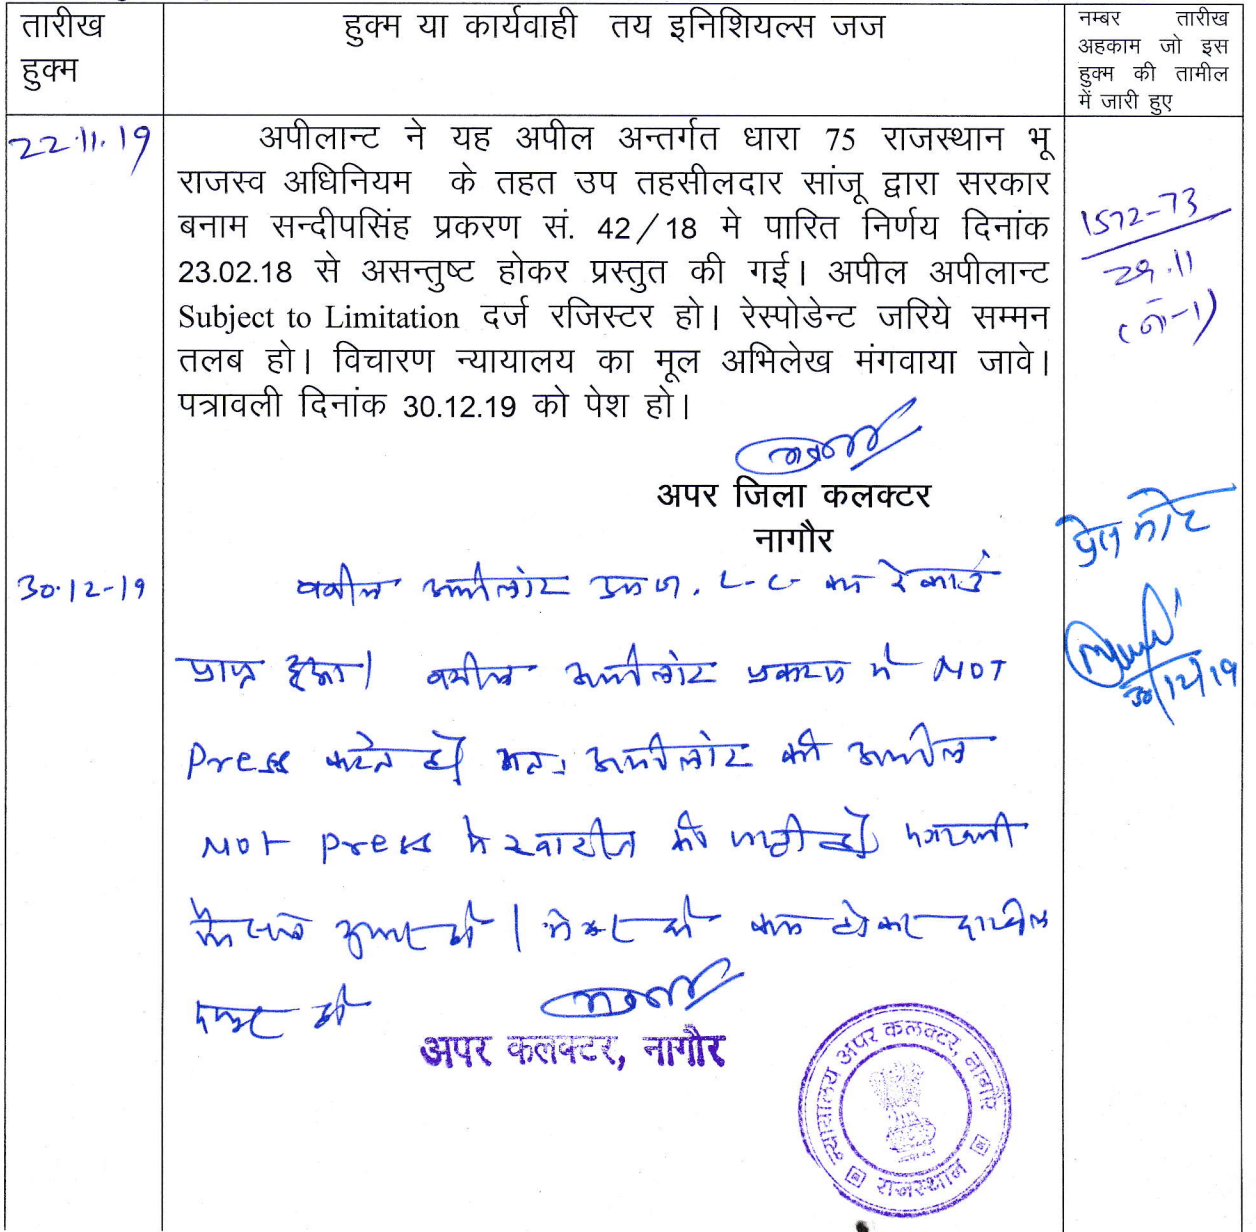 तारीख
हुक्म
हुक्म या कार्यवाही तय इनिशियल्स जज
नम्बर तारीख
अहकाम जो इस
हुक्म की तामील
में जारी हुए
22.11.19
अपीलान्ट ने यह अपील अन्तर्गत धारा 75 राजस्थान भू
राजस्व अधिनियम के तहत उप तहसीलदार सांजू द्वारा सरकार
बनाम सन्दीपसिंह प्रकरण सं. 42/18 मे पारित निर्णय दिनांक
23.02.18 से असन्तुष्ट होकर प्रस्तुत की गई। अपील अपीलान्ट
Subject to Limitation दर्ज रजिस्टर हो। रेस्पोडेन्ट जरिये सम्मन
तलब हो। विचारण न्यायालय का मूल अभिलेख मंगवाया जावे।
पत्रावली दिनांक 30.12.19 को पेश हो।
1572-73
29.11
अपर जिला कलक्टर
नागौर
30.12-19
वकील अपीलांट उप०. L-C का रेकार्ड
प्राप्त हुआ। वकील अपीलांट प्रकरण मे NOT
Press करते है। अतः अपीलांट की अपील
NOT Press मे खारीज की जाती है। पत्रावली
फैसल शुमार हो। नम्बर से कम होकर दाखील
दफ्तर हो
30/12/19
अपर कलक्टर, नागौर
न्यायालय अपर कलक्टर, नागौर
राजस्थान